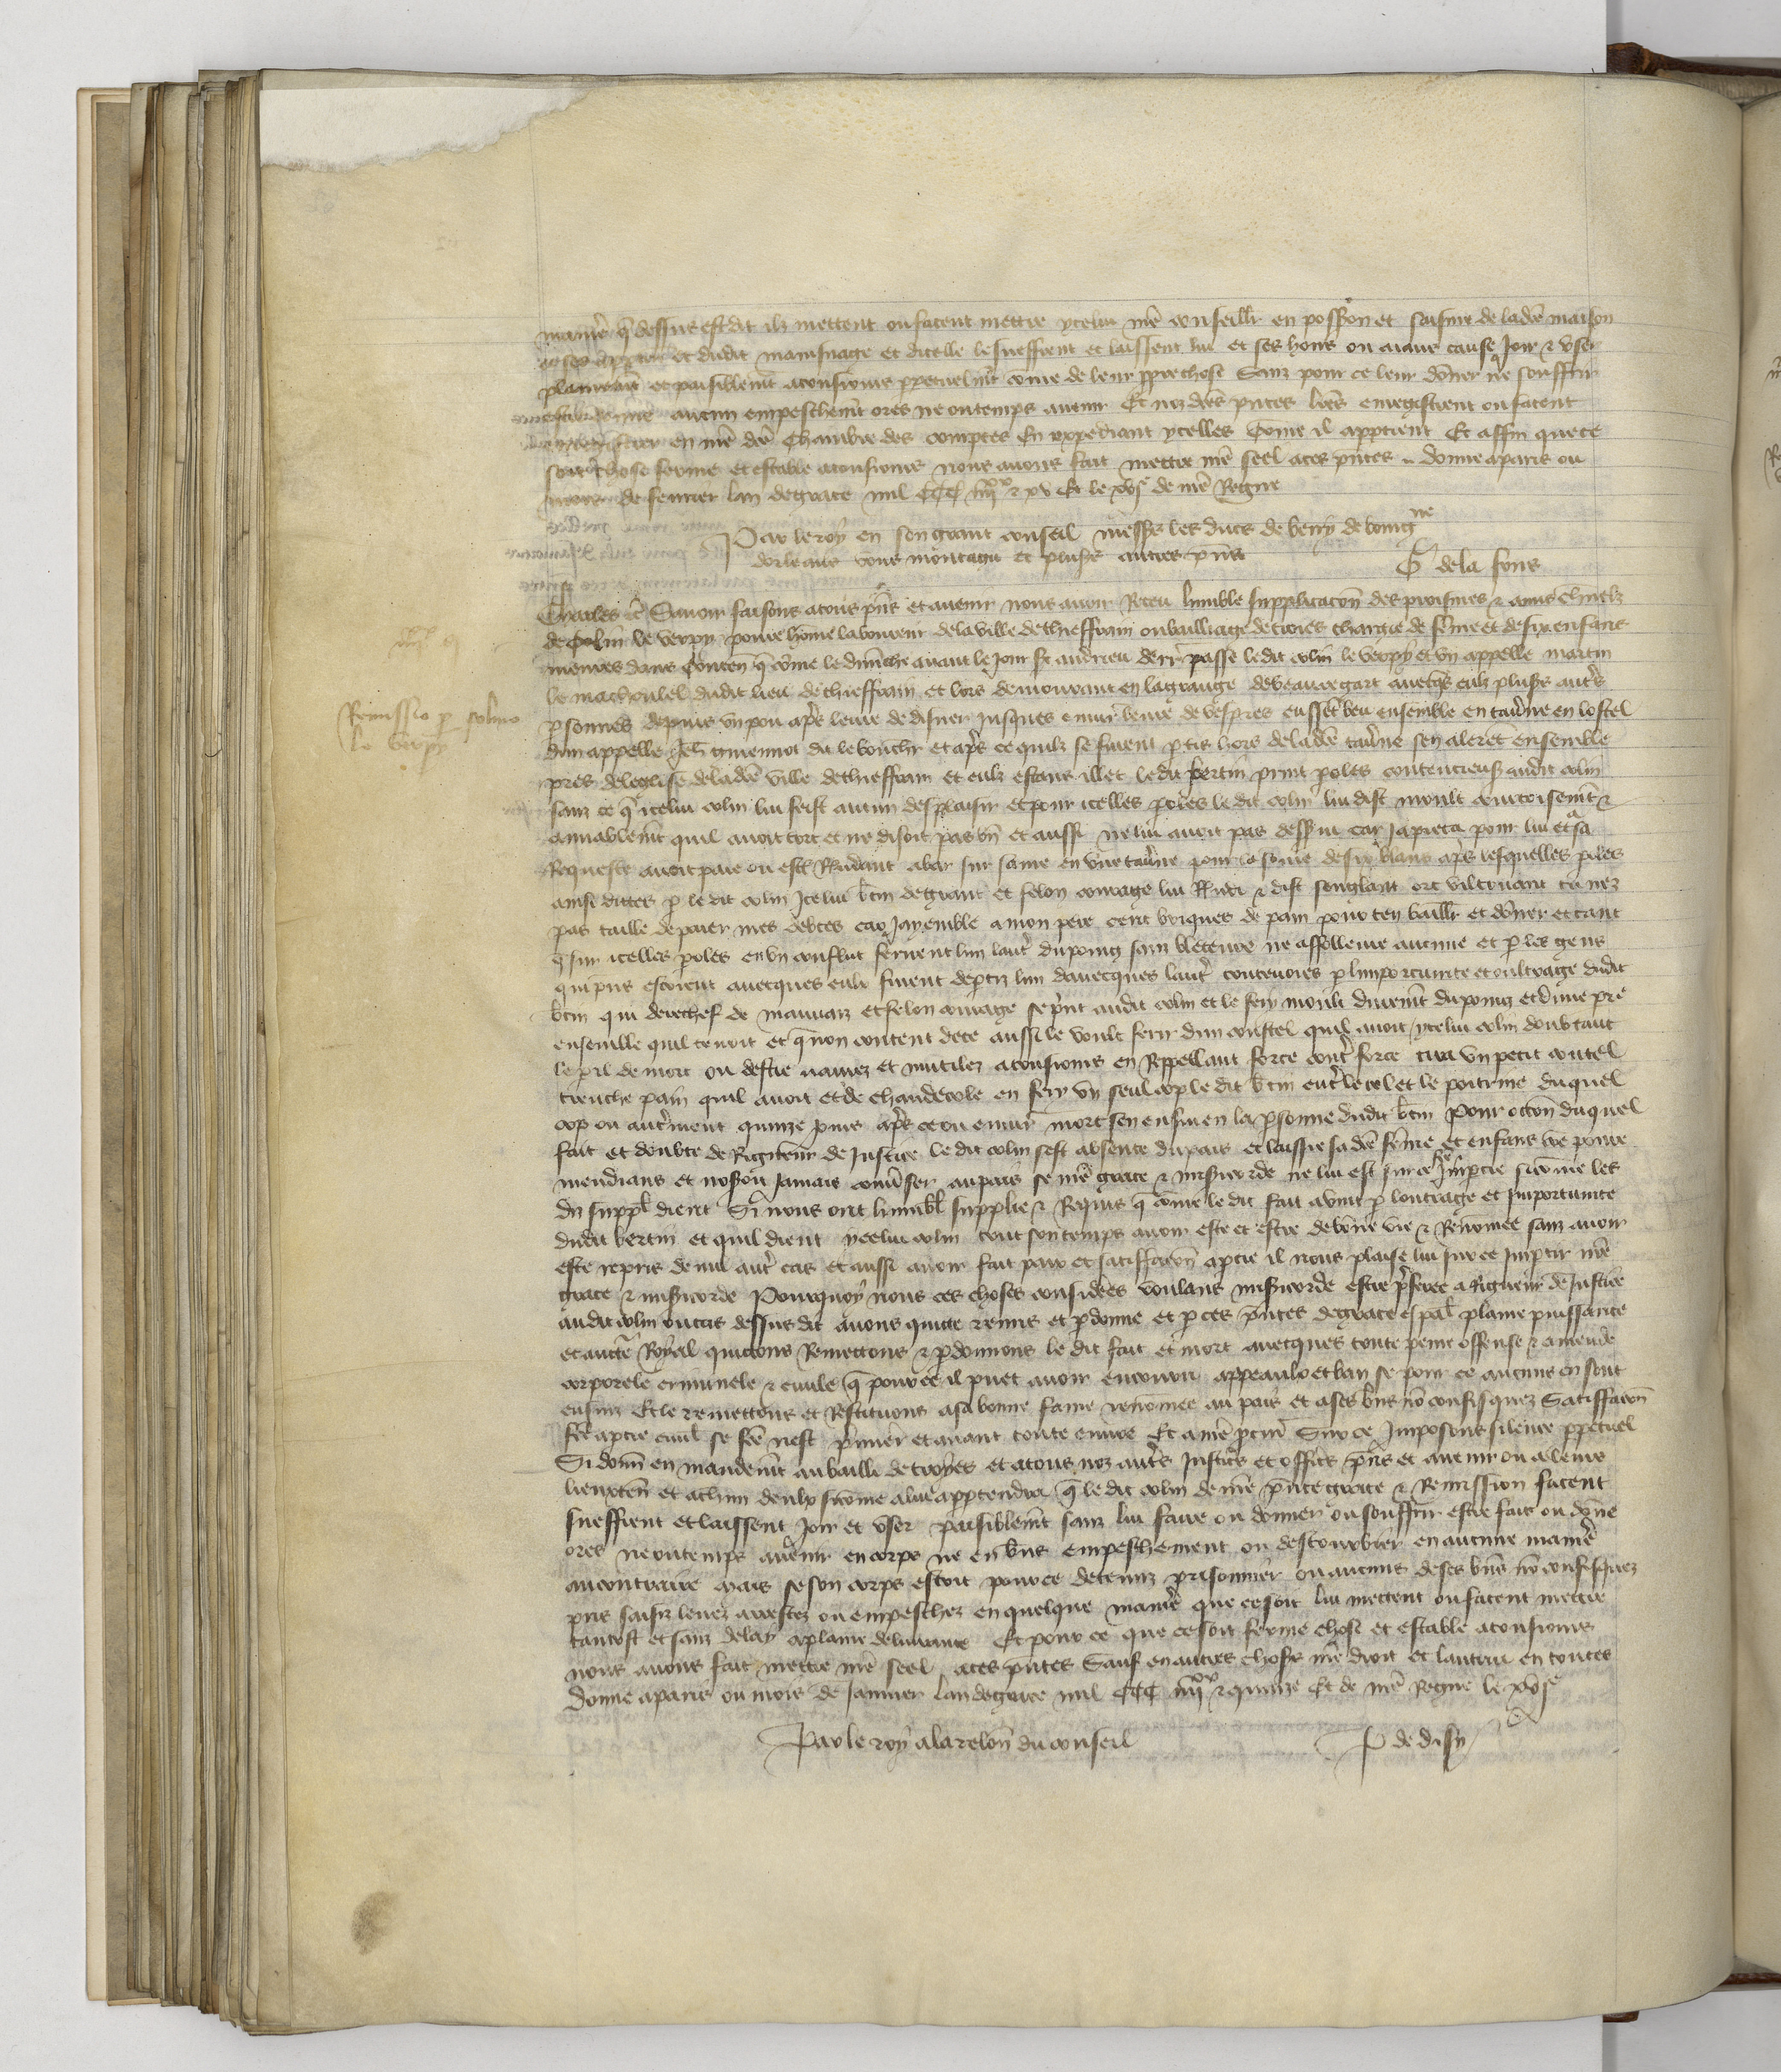 maniere que dessus est dit ilz mettent ou facent mettre ycelui nre conseillr en possession et saisine de ladte maison
et dudit manusnage et dicelle le sueffrent et laissent lui et ses hoirs ou aiant cause Joir & user
plainement et paisiblement a tousiours ppetuelmt come de leur ppre chose Sanz pour ce leur doner ne souffrir
estre donne aucun empeschemt ores ne ou temps avenir Et noz dtes pntes lres enregistrent ou facent
enregistrer en nre dte Chambre des comptes En expediant ycelles Come il apptient Et affin que ce
soit chose ferme et estable a tousiours nous avons fait mettre nre seel a ces pntes donne a paris ou
mois de fevrier lan de grace mil CCC iiijxx & xv Et le xvje de nre Regne
Par le roy en son grant conseil messrs les ducs de berry de bourgne
dorleans vous montagu et plusrs autres pns
G de la fons
Charles &c Savoir faisons a tous pns et avenir nous avoir Receu lumble supplicacon des proismes & amis charnelz
de Colin le verpy povre home laboureur de la ville de thieffrain ou bailliage de troies chargie de feme et de six enfans
menres dans Conten que come le dimenche avant le Jour St andrieu derr passe le dit colin le verpy et un appelle martin
le dudit lieu de thieffrain et lors demourant en la grange de beauregart avecqs eulz plusrs autrs
Remissio p colino
le verpy
psonnes depuis un pou aprs leure de disner Jusques envir leure de vespres eussent beu ensemble en taverne en lostel
dun appelle Jeh dit le bouchr et aprs ce quilz se furent ptis hors de ladte taverne sen alerent ensemble
pres de leglise de ladte ville de thieffrain et eulz estans illec le dit bertin print poles contencieuses audit colin
sanz ce que icelui colin lui feist aucun desplaisir et pour icelles poles le dit colin lui dist moult courtoisement &
amiablemt quil avoit tort et ne disoit pas bn et aussi ne lui avoit pas desservi car Ja pieca pour lui et a sa
Requeste avoit paie ou este Rendant a bar sur saine en une taverne pour la some de six blans aprs lesquelles poles
ainsi dittes p le dit colin Icelui btin de grant et felon courage lui & dist senglant ort vil truant tu nez
pas taille de paier mes debtes car Jay emble a mon pere cent briques de pain pour ten baillr et doner et tant
que sur icelles poles en un conflict ferirent lun lautr du poing sanz bleceure ne affolleure aucune et p les gens
qui pns estoient avecques eulx furent deptiz lun davecques lautr p limportunite et oultrage dudit
btin qui derechef de mauvaiz et felon courage se print audit colin et le fery moult durement du poing et dune pre
ensemble quil tenoit et que non content de ce aussi le voult ferir dun coustel quil avoit ycelui colin doubtant
le pril de mort ou destre navrez et mutilez a tousiours en Reppellant force contr force tira un petit coutel
trenche pain quil avoit et de chaudecole en fery un seul cop le dit btin entr le col et le poitrine duquel
cop ou autrment quinze Jours aprs ce ou envir mort sen ensuivi en la psonne dudit btin Pour occon duquel
fait et doubte de Rigueur de Justice le dit colin sest absente du pais et laissie sa dte feme et enfans povre
mendians et nosoit Jamais convser au pais se nre grace & misicorde ne lui est sur ce Imptie sicome les
dis suppl dient Si nous ont humbl supplie & Requis que come le dit fait avint p loutrage et Importunite
dudit bertin et quil dient ycelui colin tout son temps avoir este et estre de bone vie & Renomee sanz avoir
este repris de nul autr cas et aussi avoir fait paix et satiffacon a ptie il nous plaise lui sur ce Imptir nre
grace & misicorde Pourquoy nous ces choses considees voulans misicorde estre pferee a Rigueur de Justice
audit colin ou cas dessus dit avons quitte remis et pdonne et p ces pntes de grace espal plaine puissance
et auctte Royal quittons Remettons & pdonnons le dit fait et mort avecques toute peine offense & amende
corporele criminele & civile que pour ce il puet avoir encouru appeaulx et ban se pour ce aucuns en sont
ensuiz Et le remettons et Restituons a sa bonne fame renomee au pais et a ses bns no confisquez Satisffacon
fte a ptie civil se fte nest primier et avant toute euvre Et a nre pcur Sur ce Imposons silence ppetuel
Si donn en mandemt au bailli de troyes et a tous noz autrs Justicrs et officrs pns et avenir ou a leurs
lieuxten et a chun deulx sicome a lui apptendra que le dit colin de nre pnte grace & Remission facent
sueffrent et laissent Joir et user paisiblemt sanz lui faire ou donner ou souffrir estre fait ou donne
ores ne ou temps avenir en corps ne en bns empeschement ou destourbier en aucune manire
au contraire mais se son corps estoit pour ce detenuz prisonnier ou aucuns de ses bns no confisquez
pris saisiz levez arrestez ou empeschez en quelque manire que ce soit lui mettent ou facent mettre
tantost et sanz delay a plaine delivrance Et pour ce que ce soit ferme chose et estable a tousiours
nous avons fait mettre nre seel a ces pntes Sauf en autres choses nre droit et lautrui en toutes
Donne a paris ou mois de Janvier lan de grace mil CCC iiijxx & quinze Et de nre Regne le xvje
Par le roy a la relon du conseil
P de disy